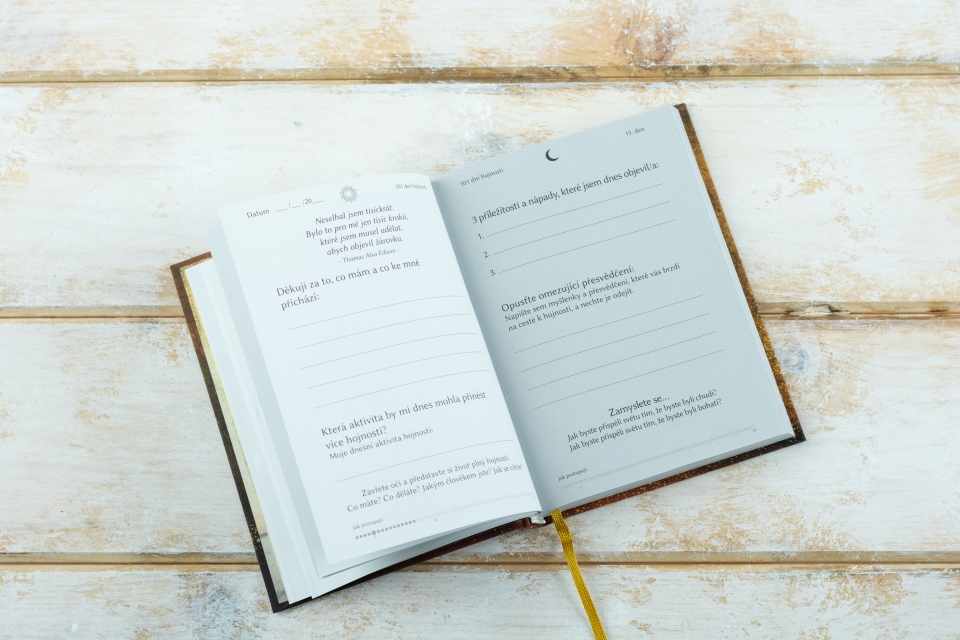 Datum __ / __ /20__
101 dní hojnosti
Neselhal jsem tisíckrát.
Bylo to pro mě jen tisíc kroků,
které jsem musel udělat,
abych objevil žárovku.
- Thomas Alva Edison -
Děkuji za to, co mám a co ke mně
přichází:
Která aktivita by mi dnes mohla přinést
více hojnosti?
Moje dnešní aktivita hojnosti:
Zavřete oči a představte si život plný hojnosti.
Co máte? Co děláte? Jakým člověkem jste? Jak se cítíte?
Jak postupuji:
101 dní hojnosti
15. den
3 příležitosti a nápady, které jsem dnes objevil/a:
1.
2.
3.
Opusťte omezující přesvědčení:
Napište sem myšlenky a přesvědčení, které vás brzdí
na cestě k hojnosti, a nechte je odejít.
Zamyslete se...
Jak byste přispěli světu tím, že byste byli chudí?
Jak byste přispěli světu tím, že byste byli bohatí?
Jak postupuji: